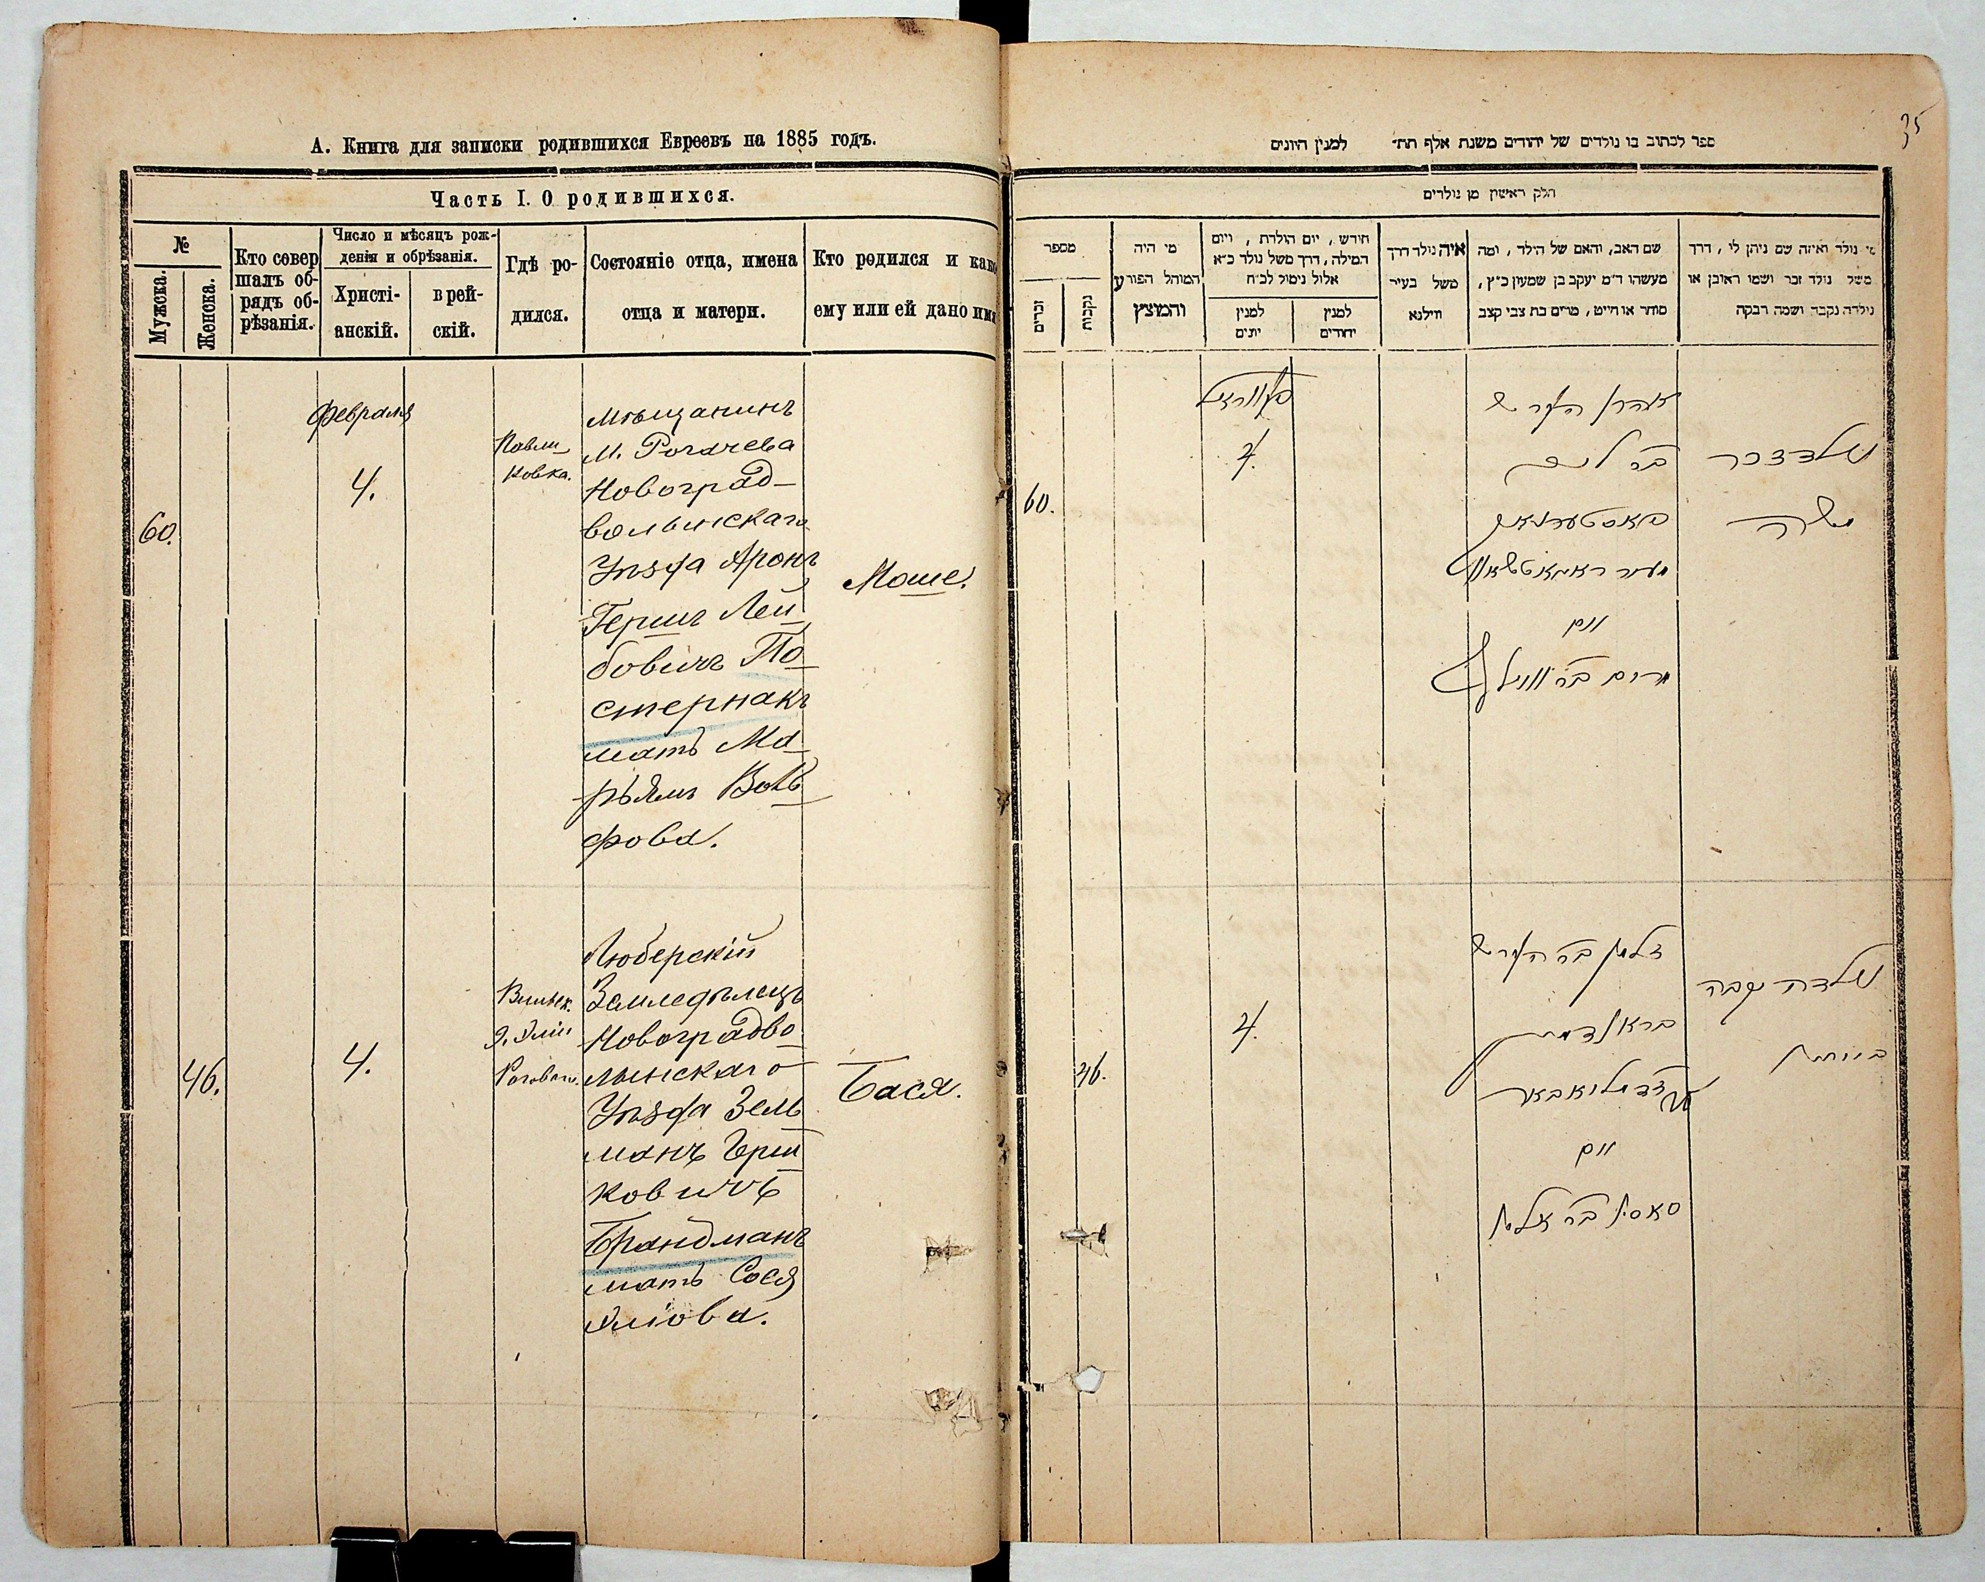 А. Книга для записки родившихся Евреевъ на 1885 годъ.
Часть I. О родившихся.
№
Мужска.
Женска.
Кто совер
шалъ об-
рядъ об-
рѣзанія.
Число и мѣсяцъ рож-
денія и обрѣзанія.
Христі-
анскій.
врей-
скій.
Гдѣ ро-
дился.
Состояніе отца, имена
отца и матери.
Кто родился и како
ему или ей дано имя
60.
Февраля
4.
Павли-
новка.
Мѣщанинъ
м. Рогачева
Новоград-
волынскаго
Уѣзда Аронъ
Гершъ Лей-
бовичъ Па-
стернакъ
мать Ма-
рьямъ Воль-
фова.
Моше.
46.
4.
Люберскій
Земледѣлецъ
Новоградво-
лынскаго
Уѣзда Зель-
манъ Герш-
ковичъ
Брандманъ
мать Сося
Эліова.
Бася.
35
ספר לכתוב בו נולדים של יהודים משנת אלף תת״ למנין היונים
חלק ראשון מן נולדים
מספר
זכרים
נקבות
מי היה
המוהל הפורע
והמוצץ
חודש, יום הולדת, ויום
המילה, דרך משל נולד כ״א
אלול נימול לכ״ח
למנין
יונים
למנין
יהודים
איה נולד דרך
משל בעיר
ווילנא
שם האב, והאם של הילד, ומה
מעשהו ד״מ יעקב בן שמעון כ״ץ,
סוחר או חייט, מרים בת צבי קצב
מי נולד ואיזה שם ניתן לו, דרך
משל נולד זכר ושמו ראובן או
נולדה נקבה ושמה רבקה
60.
4.
אהרן הירש
בר ליב
פאסטערנאק
נולד זכר
משה
46.
4.
זלמן בר הירש
בראנדמאן
נולדה נקבה